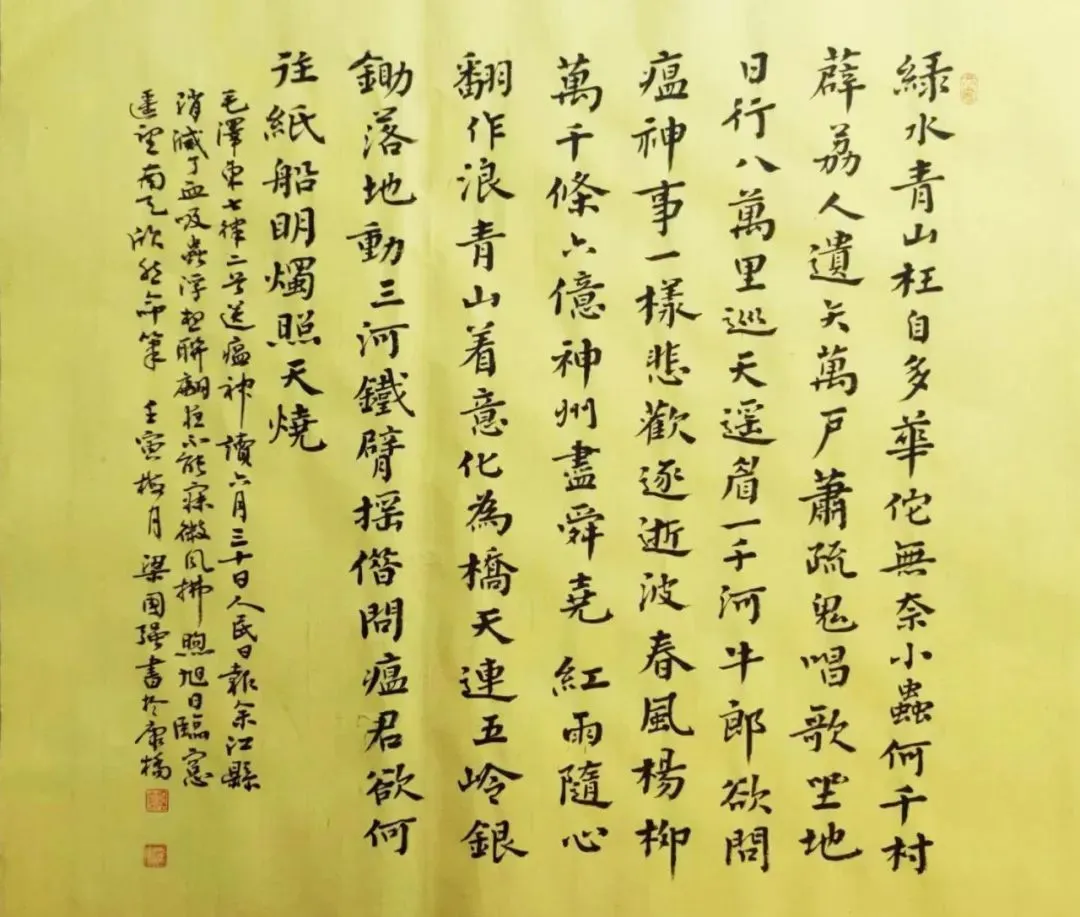 綠水青山枉自多華佗無奈小蟲何千村
薜荔人遺矢萬戶蕭疏鬼唱歌坐地
日行八萬里巡天遥看一千河牛郎欲問
瘟神事一樣悲歡逐逝波春風楊柳
萬千條六億神州盡舜堯 紅雨隨心
翻作浪青山着意化為橋天連五岭銀
鋤落地動三河鐵臂摇借問瘟君欲何
往紙船明燭照天燒
毛澤東七律二首送瘟神讀六月三十日人民日報余江縣
消滅了血吸蟲浮想聯翩夜不能寐微風拂煦旭日臨窗
遥望南天欣然命筆 壬寅梅月 梁國强書於康橋